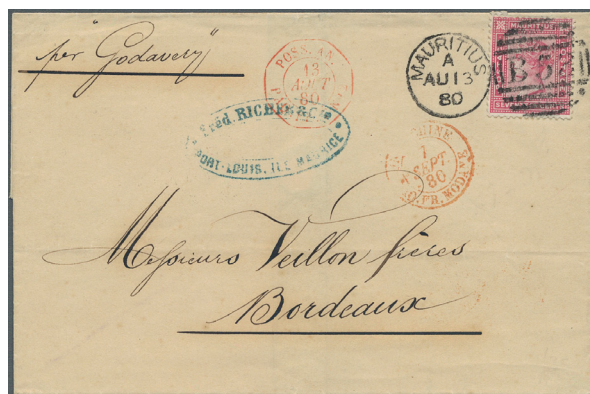 per "Godavery"
POSS. AN.
13
AOUT
80
MAURITIUS
A
AU 13
80
B53
Fréd. RICHE & Cie
PORT-LOUIS, ILE MAURICE
1
SEPT.
80
MODANE
Messieurs Veillon frères
Bordeaux